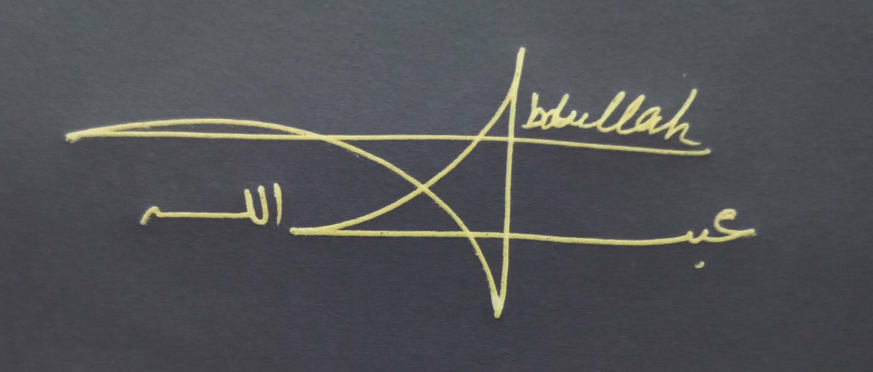 Abdullah
عبد الله